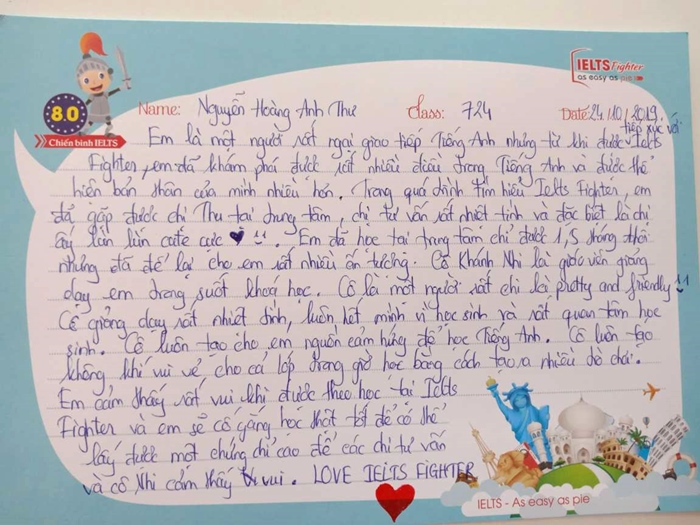 IELTS Fighter
as easy as pie
8.0
Chiến binh IELTS
Name: Nguyễn Hoàng Anh Thư Class: 724 Date: 24/10/2019
Em là một người rất ngại giao tiếp Tiếng Anh nhưng từ khi được tiếp xúc với Ielts
Fighter, em đã khám phá được rất nhiều điều trong Tiếng Anh và được thể
hiện bản thân của mình nhiều hơn. Trong quá trình tìm hiểu Ielts Fighter, em
đã gặp được chị Thu tại trung tâm, chị tư vấn rất nhiệt tình và đặc biệt là chị
ấy lùn lùn cute cực. Em đã học tại trung tâm chỉ được 1,5 tháng thôi
nhưng đã để lại cho em rất nhiều ấn tượng. Cô Khánh Nhi là giáo viên giảng
dạy em trong suốt khoá học. Cô là một người rất chi là pretty and friendly
Cô giảng dạy rất nhiệt tình, luôn hết mình vì học sinh và rất quan tâm học
sinh. Cô luôn tạo cho em nguồn cảm hứng để học Tiếng Anh. Cô luôn tạo
không khí vui vẻ cho cả lớp trong giờ học bằng cách tạo ra nhiều trò chơi.
Em cảm thấy rất vui khi được theo học tại Ielts
Fighter và em sẽ cố gắng học thật tốt để có thể
lấy được một chứng chỉ cao để các chị tư vấn
và cô Nhi cảm thấy vui. LOVE IELTS FIGHTER
IELTS - As easy as pie